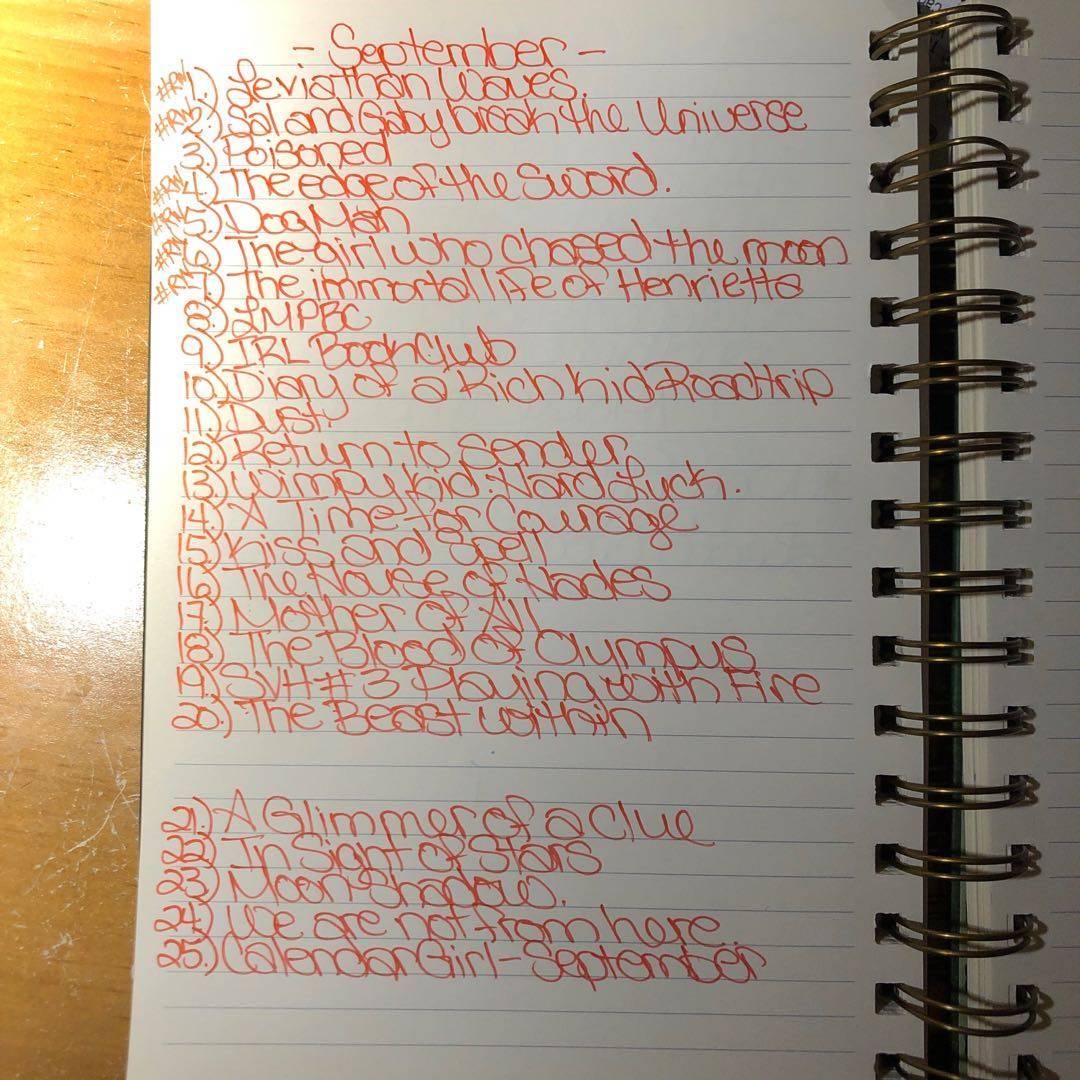 - September -
#RW 1.) Leviathan Waves.
#RW 2.) Sal and Gaby break the Universe
3.) Poisoned
#RW 4.) The edge of the Sword.
#RW 5.) Dog Man
#RW 6.) The girl who chased the moon
#RW 7.) The immortal life of Henrietta
8.) LMPBC
9.) IRL Book Club
10.) Diary of a Rich Kid-Roadtrip
11.) Dusty
12.) Return to Sender.
13.) Wimpy Kid: Hard Luck.
14.) A Time for Courage
15.) Kiss and Spell
16.) The House of Hades
17.) Mother of All
18.) The Blood of Olympus
19.) SVH #3 Playing with Fire
20.) The Beast within
21.) A Glimmer of a Clue
22.) In Sight of Stars
23.) Moon Shadow.
24.) We are not from here
25.) Calendar Girl - September